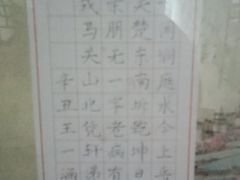 闻洞庭水今上岳
吴楚东南坼乾坤日
亲朋无一字老病有
戎马关山北凭轩涕
辛丑王一涵